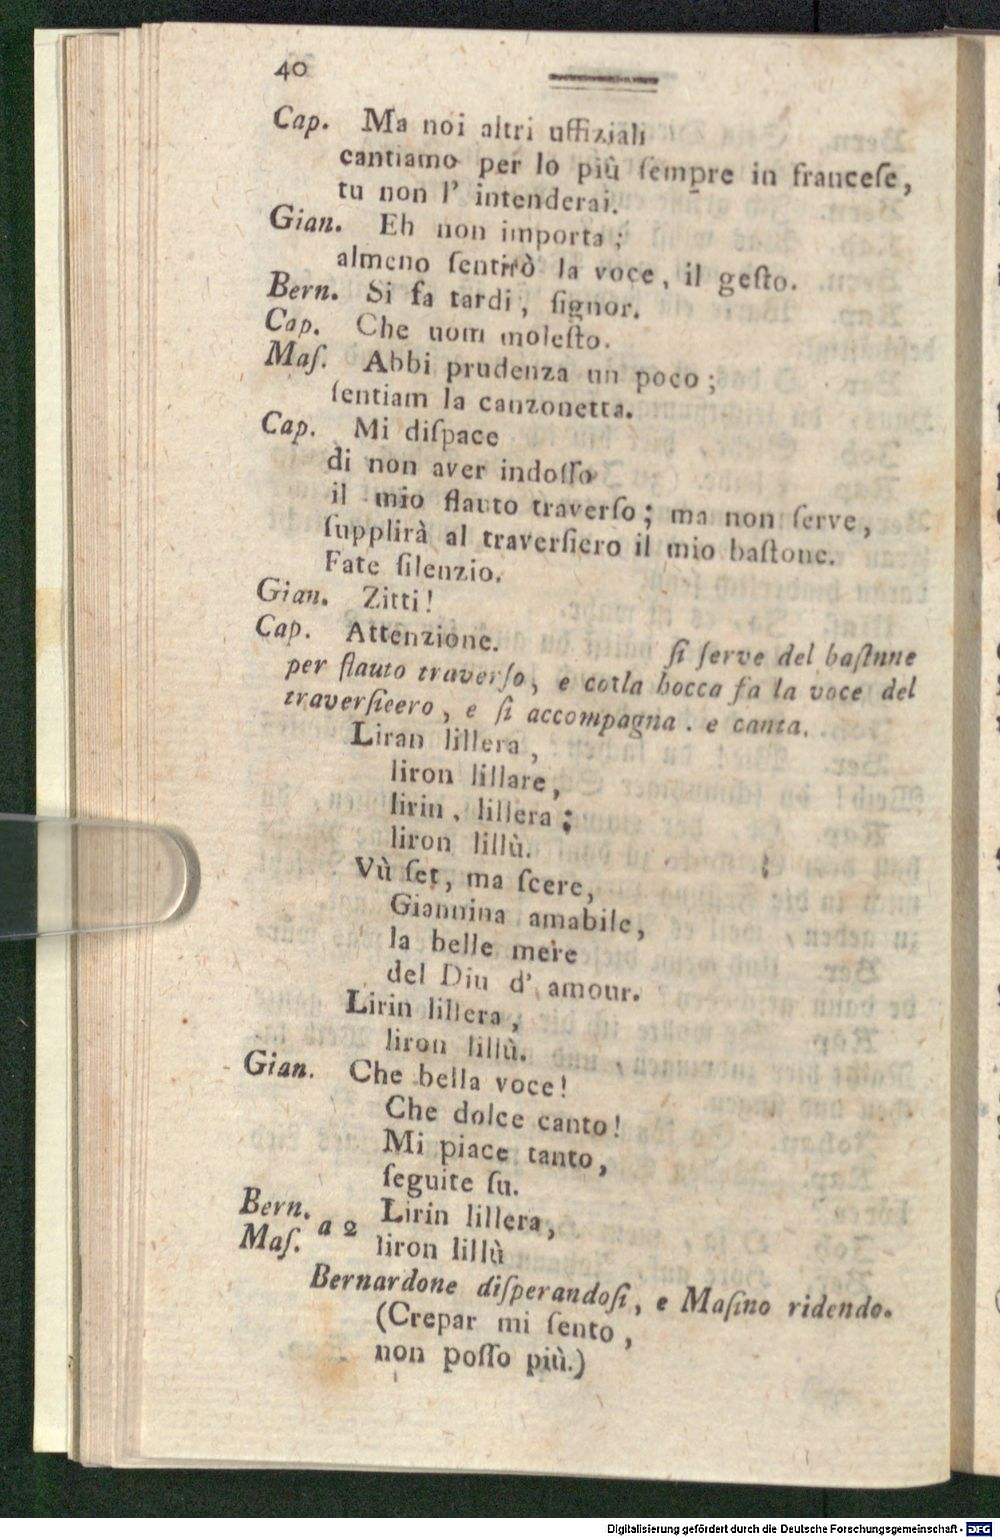 40
Cap. Ma noi altri uffiziali
cantiamo per lo più ſempre in franceſe,
tu non l' intenderai.
Gian. Eh non importa;
almeno ſentirò la voce, il geſto.
Bern. Si fa tardi, ſignor.
Cap. Che uom moleſto.
Maſ. Abbi prudenza un poco;
ſentiam la canzonetta.
Cap. Mi diſpace
di non aver indoſſo
il mio flauto traverſo; ma non ſerve,
ſupplirà al traverſiero il mio baſtone.
Fate ſilenzio.
Gian. Zitti!
Cap. Attenzione. ſi ſerve del baſtnne
per flauto traverſo, e cotla bocca fa la voce del
traverſieero, e ſi accompagna. e canta.
Liran lillera,
liron lillare,
lirin, lillera;
liron lillù.
Vù ſet, ma ſcere,
Giannina amabile,
la belle mere
del Diu d' amour.
Lirin lillera,
liron lillù.
Gian. Che bella voce!
Che dolce canto!
Mi piace tanto,
ſeguite ſu.
Bern. Maſ. a 2 Lirin lillera,
liron lillù
Bernardone diſperandoſi, e Maſino ridendo.
(Crepar mi ſento,
non poſſo più.)
Digitalisierung gefördert durch die Deutsche Forschungsgemeinschaft - DFG